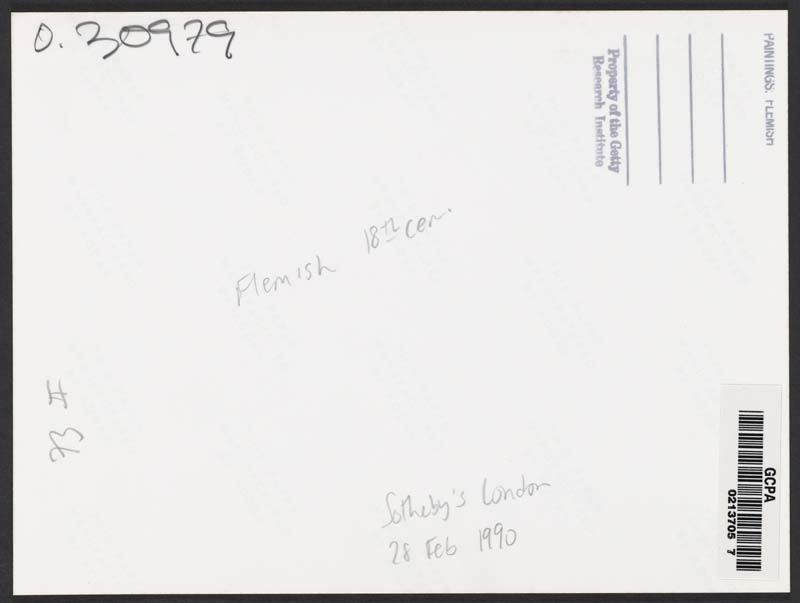 0.30979
PAINTINGS: FLEMISH
Property of the Getty
Research Institute
Flemish 18th cen.
Sotheby's London
28 Feb 1990
GCPA
0213705 7